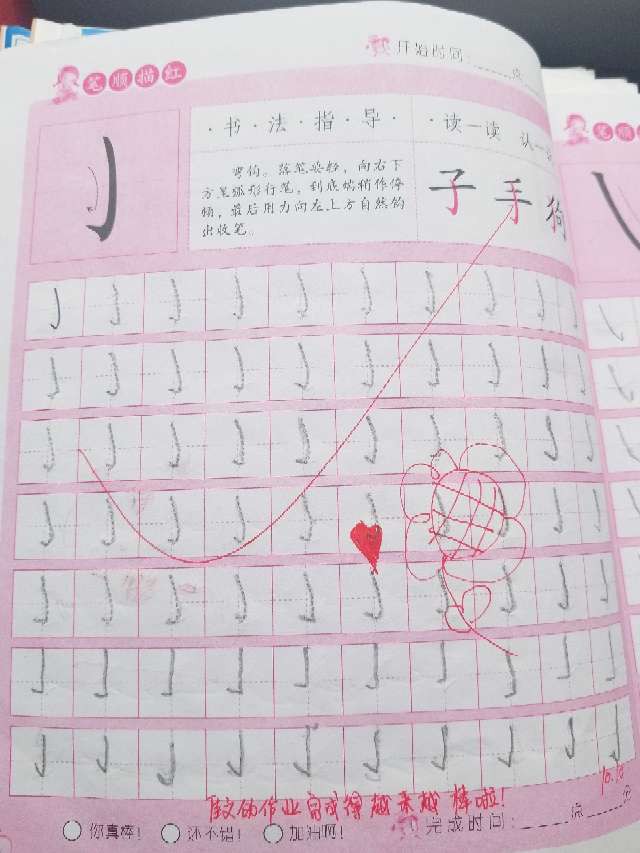 笔顺描红
开始时间:
点
·书·法·指·导·
·读一读 认一
弯钩。落笔要轻,向右下
方呈弧形行笔,到底端稍作停
顿,最后用力向左上方自然钩
出收笔。
子 手 狗
笔顺
作业完成得越来越棒啦!
10.10
你真棒! 还不错! 加油啊!
完成时间:
点